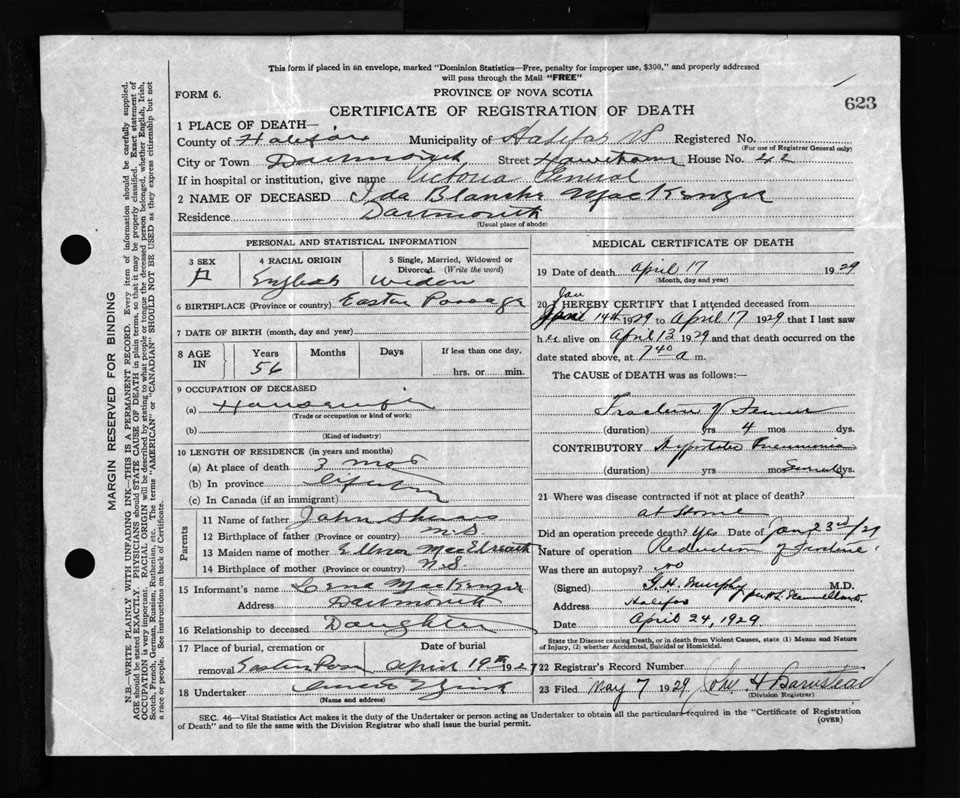 This form if placed in an envelope, marked "Dominion Statistics—Free, penalty for improper use, $300," and properly addressed
will pass through the Mail "FREE"
FORM 6.
PROVINCE OF NOVA SCOTIA
623
CERTIFICATE OF REGISTRATION OF DEATH
1 PLACE OF DEATH—
County of Halifax Municipality of Halifax Registered No.
(For use of Registrar General only)
City or Town Dartmouth, Street Hawthorne House No. 42
If in hospital or institution, give name Victoria General
2 NAME OF DECEASED Ida Blanche MacKenzie
Residence Dartmouth
(Usual place of abode)
PERSONAL AND STATISTICAL INFORMATION
3 SEX F
4 RACIAL ORIGIN English
5 Single, Married, Widowed or Divorced. (Write the word) Widow
6 BIRTHPLACE (Province or country) Eastern Passage
7 DATE OF BIRTH (month, day and year)
8 AGE IN Years 56 Months Days If less than one day, hrs. or min.
9 OCCUPATION OF DECEASED
(a) Housewife
(Trade or occupation or kind of work)
(b)
(Kind of industry)
10 LENGTH OF RESIDENCE (in years and months)
(a) At place of death 3 mos
(b) In province Lifetime
(c) In Canada (if an immigrant)
Parents
11 Name of father John
12 Birthplace of father (Province or country) N.S
13 Maiden name of mother Ellnor
14 Birthplace of mother (Province or country) N.S.
15 Informant's name Lena MacKenzie
Address Dartmouth
16 Relationship to deceased Daughter
17 Place of burial, cremation or Date of burial
removal Eastern Pass April 19th 1927
18 Undertaker
(Name and address)
MEDICAL CERTIFICATE OF DEATH
19 Date of death April 17 1929
(Month, day and year)
20 I HEREBY CERTIFY that I attended deceased from
Jan
14th 1929 to April 17 1929 that I last saw
her alive on April 13 1929 and that death occurred on the
date stated above, at 7 40 a m.
The CAUSE of DEATH was as follows:—
Fracture of Femur
(duration) yrs 4 mos dys.
CONTRIBUTORY Hypostatic Pneumonia
(duration) yrs mos Several dys.
21 Where was disease contracted if not at place of death?
at Home
Did an operation precede death? Yes Date of Jan 23rd/29
Nature of operation Reduction of Fracture
Was there an autopsy? no
(Signed) Murphy M.D.
Address Halifax
Date April 24, 1929
State the Disease causing Death, or in death from Violent Causes, state (1) Means and Nature
of Injury, (2) whether Accidental, Suicidal or Homicidal.
22 Registrar's Record Number
23 Filed May 7 1929 John H Barnstead
(Division Registrar)
SEC. 46—Vital Statistics Act makes it the duty of the Undertaker or person acting as Undertaker to obtain all the particulars required in the "Certificate of Registration
of Death" and to file the same with the Division Registrar who shall issue the burial permit.
(OVER)
MARGIN RESERVED FOR BINDING
N.B.—WRITE PLAINLY WITH UNFADING INK—THIS IS A PERMANENT RECORD. Every item of information should be carefully supplied.
AGE should be stated EXACTLY. PHYSICIANS should STATE CAUSE OF DEATH in plain terms, so that it may be properly classified. Exact statement of
OCCUPATION is very important. RACIAL ORIGIN will be described by stating to what people or tongue the deceased person belonged, whether English, Irish,
Scotch, French, German, Russian, Ruthenian, etc. The terms "AMERICAN" or "CANADIAN" SHOULD NOT BE USED as they express citizenship but not
a race or people. See instructions on back of Certificate.